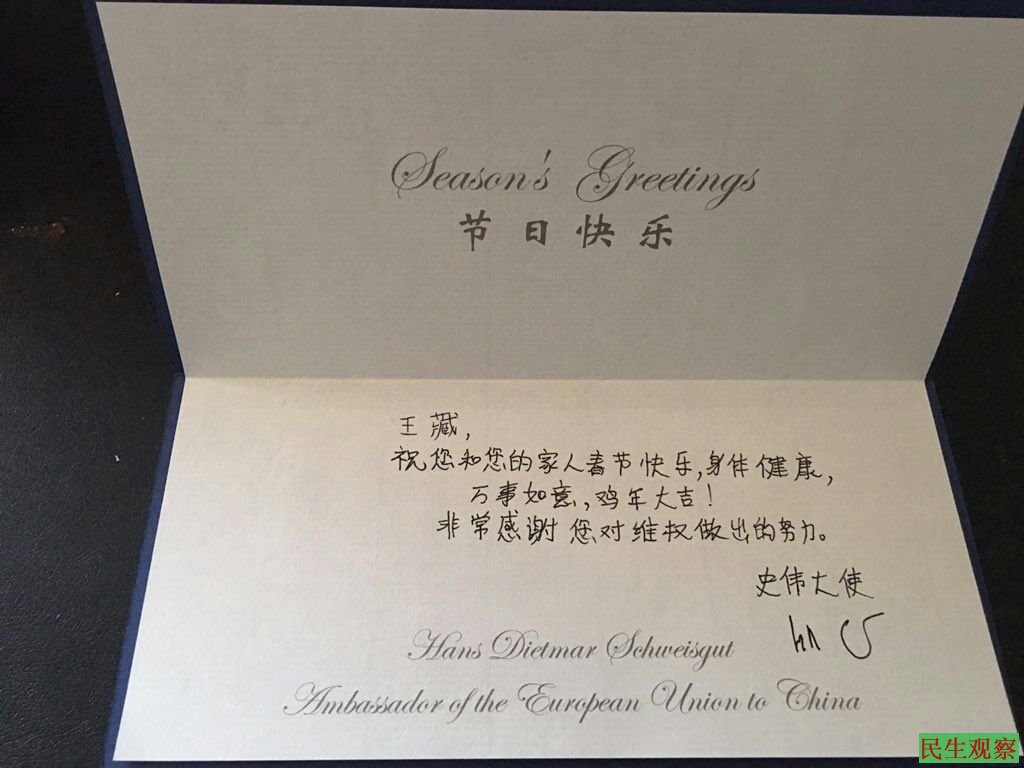 Season's Greetings
节日快乐
王藏,
祝您和您的家人春节快乐,身体健康,
万事如意,鸡年大吉!
非常感谢您对维权做出的努力。
史伟大使
Hans Dietmar Schweisgut
Ambassador of the European Union to China
民生观察